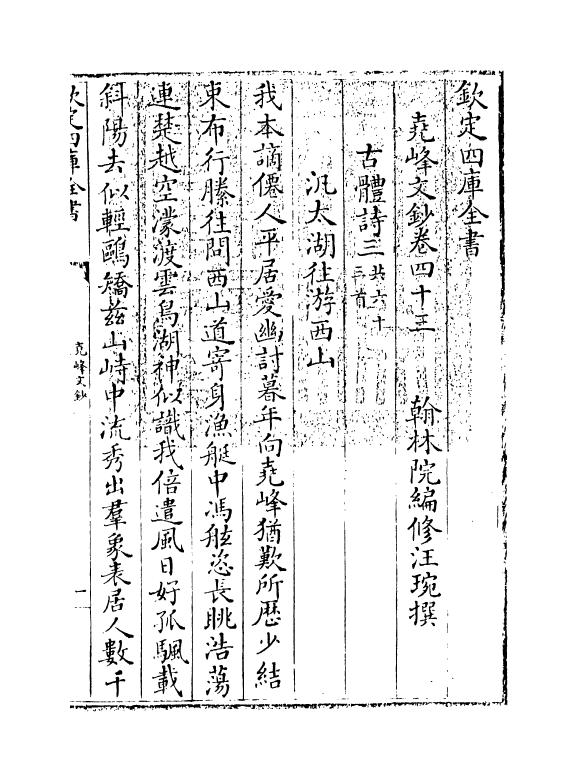 欽定四庫全書
堯峰文鈔卷四十三　翰林院編修汪琬撰
古體詩三共六十三首
汎太湖往游西山
我本謫僊人平居愛幽討暮年向堯峰猶歎所歴少結
束布行縢往問西山道寄身漁艇中馮舷恣長眺浩蕩
連楚越空濛渡雲鳥湖神似識我倍遣風日好孤颿載
斜陽去似輕鷗矯兹山峙中流秀出羣象表居人數千
欽定四庫全書
堯峰文鈔
一